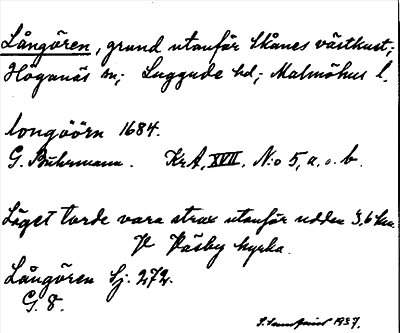 Långören, grund utanför Skånes västkust;
Höganäs sn; Luggude hd; Malmöhus l.
longöörn 1684.
G. Buhrmann. KrA, XVII, N:o 5, a. o. b.
Läget torde vara strax utanför udden 3,6 km
V Väsby kyrka.
Långören Sj. 272.
G. 8.
1937.